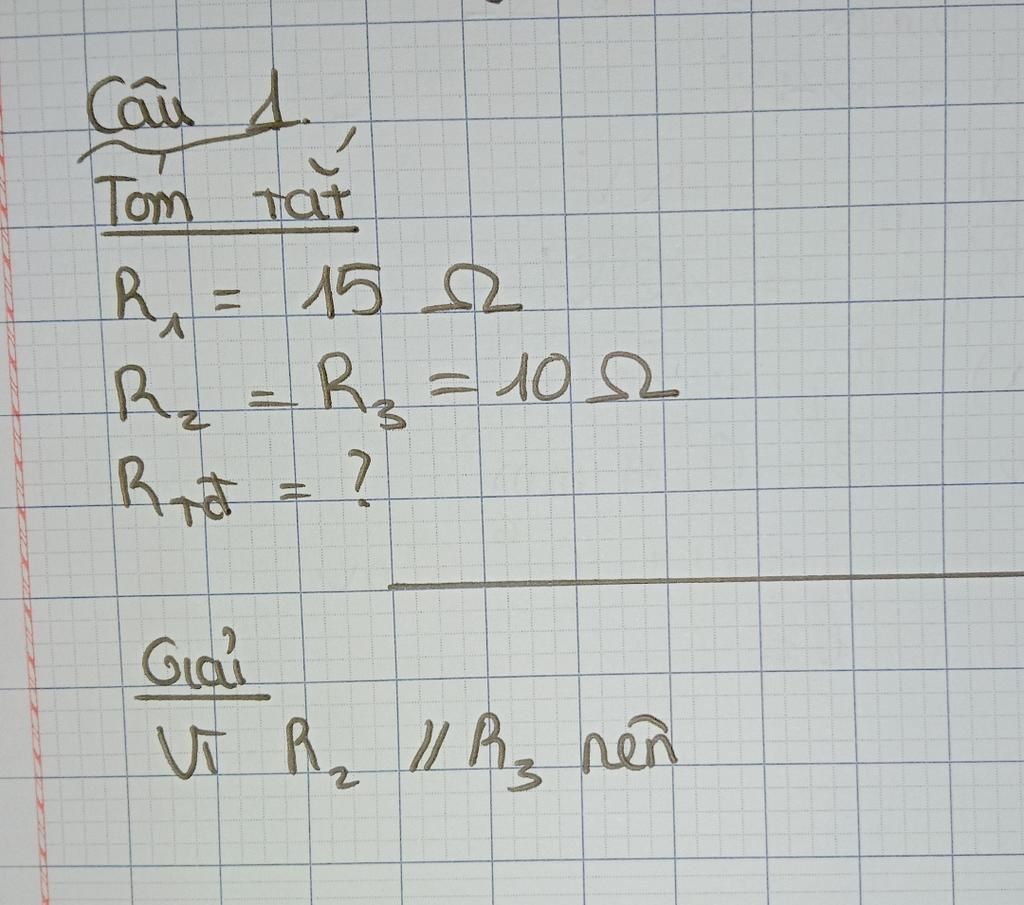 Câu 1.
Tóm tắt
R₁ = 15 Ω
R₂ = R₃ = 10 Ω
R_tđ = ?
Giải
Vì R₂ // R₃ nên